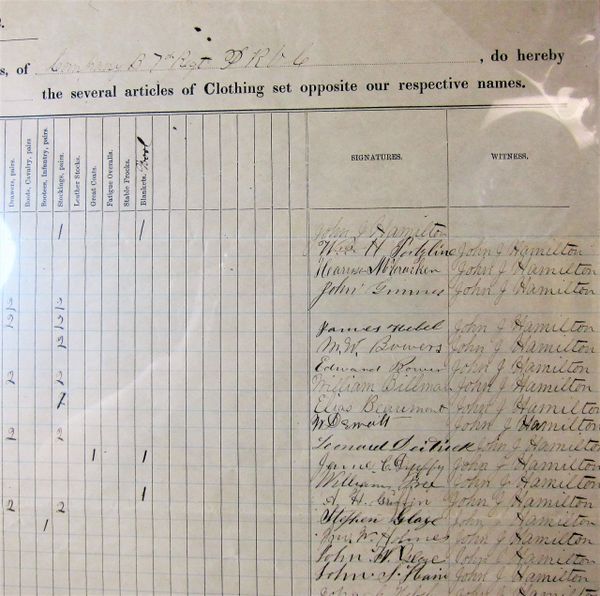 s, of Company B 7th Regt P R V C , do hereby
the several articles of Clothing set opposite our respective names.
Drawers, pairs.
Boots, Cavalry, pairs
Bootees, Infantry, pairs
Stockings, pairs.
Leather Stocks.
Great Coats.
Fatigue Overalls.
Stable Frocks.
Blankets, Wool
SIGNATURES. WITNESS.
1 1 John J Hamilton
Wm H John J Hamilton
McCracken John J Hamilton
John John J Hamilton
3 3
3 3 James John J Hamilton
3 M. W. Bowers John J Hamilton
Edward John J Hamilton
2 2 William John J Hamilton
Elias Beaumont John J Hamilton
John J Hamilton
2 2 Leonard John J Hamilton
1 1 James C Duffy John J Hamilton
William John J Hamilton
1 A. H. Griffin John J Hamilton
2 2 Stephen Glace John J Hamilton
1 W. Holmes John J Hamilton
John W. Glace John J Hamilton
John S. Hain John J Hamilton